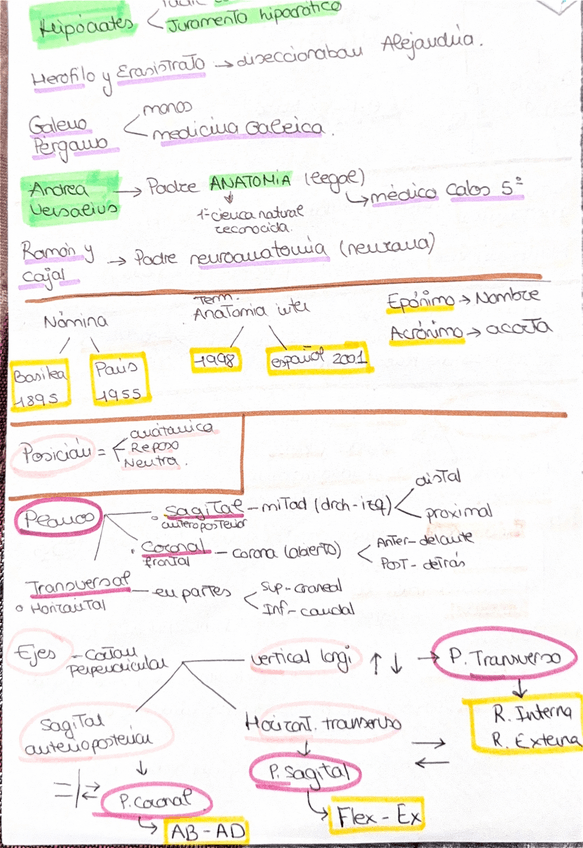 Hipócrates
Juramento hipocrático
Herofilo y Erasistrato → diseccionaban Alejandría.
Galeno Pérgamo
monos
medicina Galeica.
Andrea Versalius → Padre ANATOMIA (legal)
↳ médico Calos 5º
1ª cienca natural reconocida.
Ramón y Cajal → Padre neuroanatomía (neurona)
Nómina
Basilea 1895
París 1955
Term. Anatomia inter
1998
español 2001
Epónimo → Nombre
Acrónimo → acorta
Posición =
anatámica
Reposo
Neutra.
Planos
Sagital - mitad (drch-izq)
anteroposterior
distal
proximal
Coronal - corona (abierto)
frontal
Anter-delante
Post-detrás
Transversal - en partes
Horizontal
Sup-craneal
Inf-caudal
Ejes - Cortan perpendicular
vertical longi ↑ ↓ → P. Transverso
R. Interna
R. Externa
Sagital anteroposterior
P. Coronal
↳ AB - AD
Horizont. transverso
P. Sagital
↳ Flex - Ex